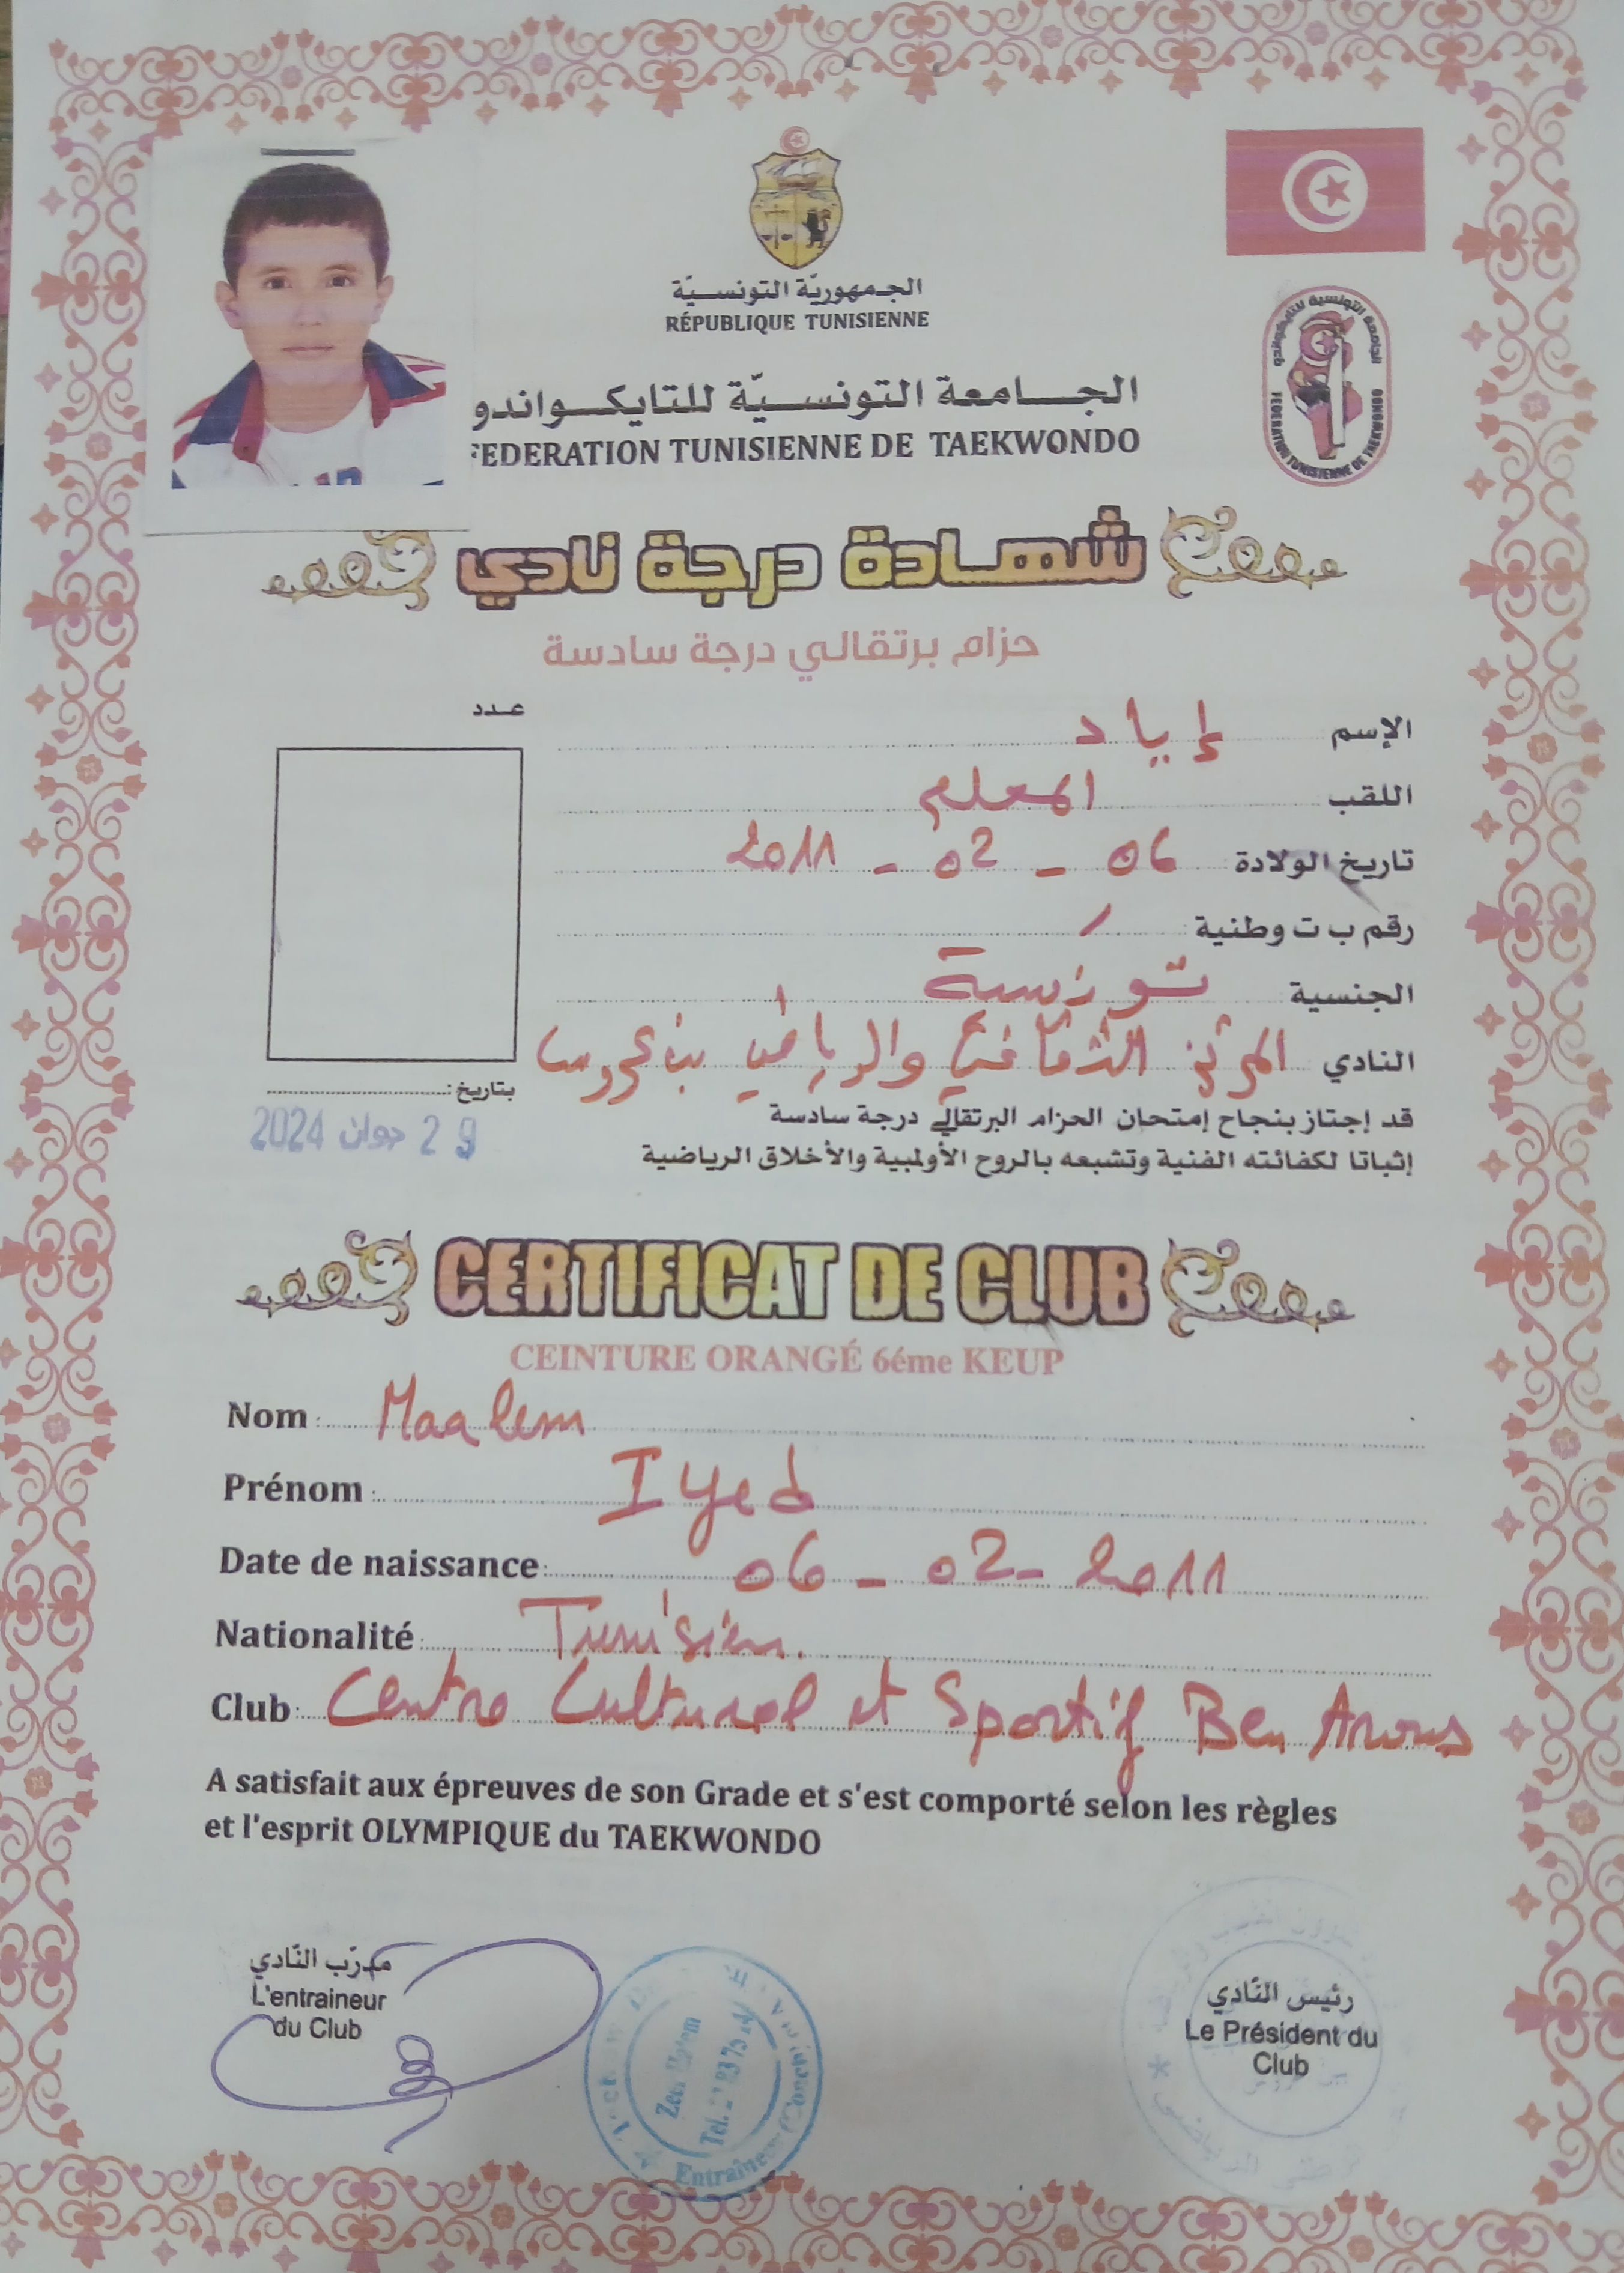 الجمهوريّة التونسيّة
RÉPUBLIQUE TUNISIENNE
الجامعة التونسيّة للتايكواندو
FEDERATION TUNISIENNE DE TAEKWONDO
الجامعة التونسية للتايكواندو
FEDERATION TUNISIENNE DE TAEKWONDO
شهادة درجة نادي
حزام برتقالي درجة سادسة
عدد
الإسم إياد
اللقب المعلم
تاريخ الولادة 06 - 02 - 2011
رقم ب ت وطنية /
الجنسية تونسية
النادي المركز الثقافي والرياضي بن عروس
بتاريخ :
29 جوان 2024
قد إجتاز بنجاح إمتحان الحزام البرتقالي درجة سادسة
إثباتا لكفائته الفنية وتشبعه بالروح الأولمبية والأخلاق الرياضية
CERTIFICAT DE CLUB
CEINTURE ORANGÉ 6éme KEUP
Nom : Maalem
Prénom : Iyed
Date de naissance : 06 - 02 - 2011
Nationalité : Tunisien.
Club : Centre Culturel et Sportif Ben Arous
A satisfait aux épreuves de son Grade et s'est comporté selon les règles
et l'esprit OLYMPIQUE du TAEKWONDO
مدرّب النّادي
L'entraineur
du Club
رئيس النّادي
Le Président du
Club
Tél.
Entraineur